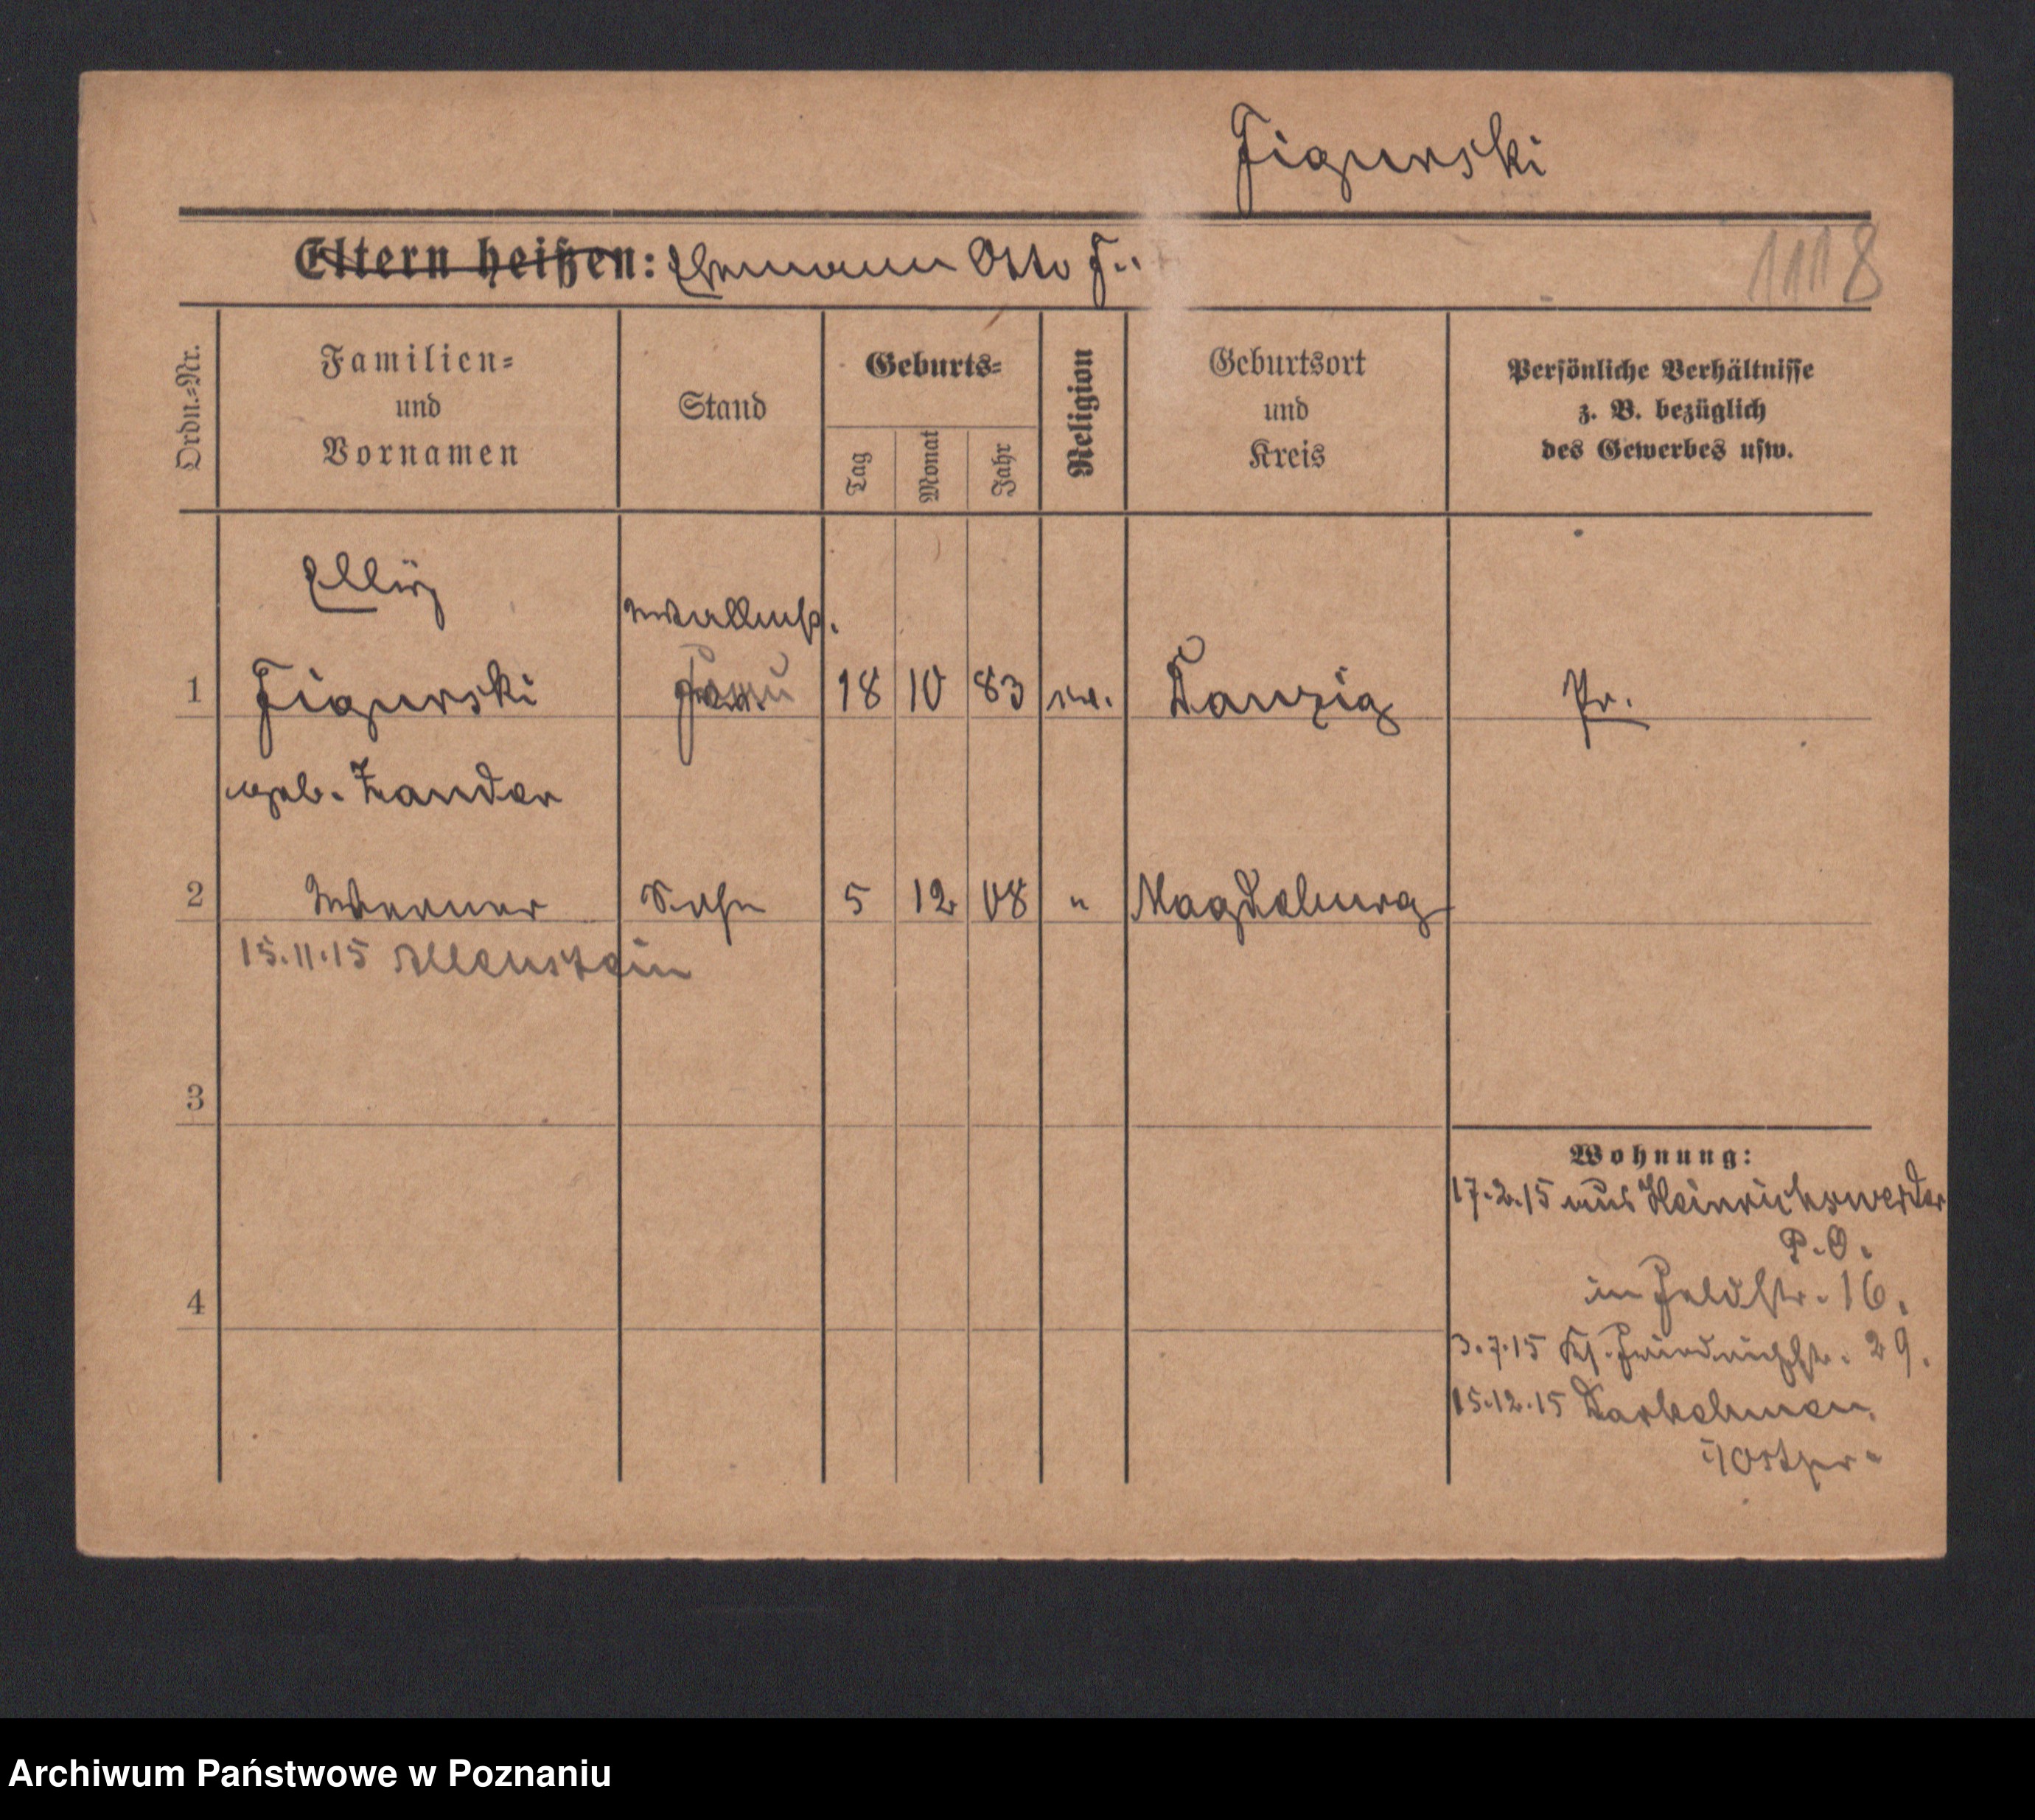 Figurski
Eltern heißen: Ehemann Otto F..
1118
Ordn.-Nr.
Familien-
und
Vornamen
Stand
Geburts-
Tag
Monat
Jahr
Religion
Geburtsort
und
Kreis
Persönliche Verhältnisse
z. B. bezüglich
des Gewerbes usw.
1 Figurski 18 10 83 Danzig Pr.
geb. Zander
2 Werner Sohn 5 12 08 " Magdeburg
15.11.15 Allenstein
3
4
Wohnung:
17.2.15 aus Heinrichswerder
P.O.
in Feldstr. 16.
3.7.15 Ks. Friedrichstr. 29.
15.12.15 Darkehmen
i/Ostpr.
Archiwum Państwowe w Poznaniu